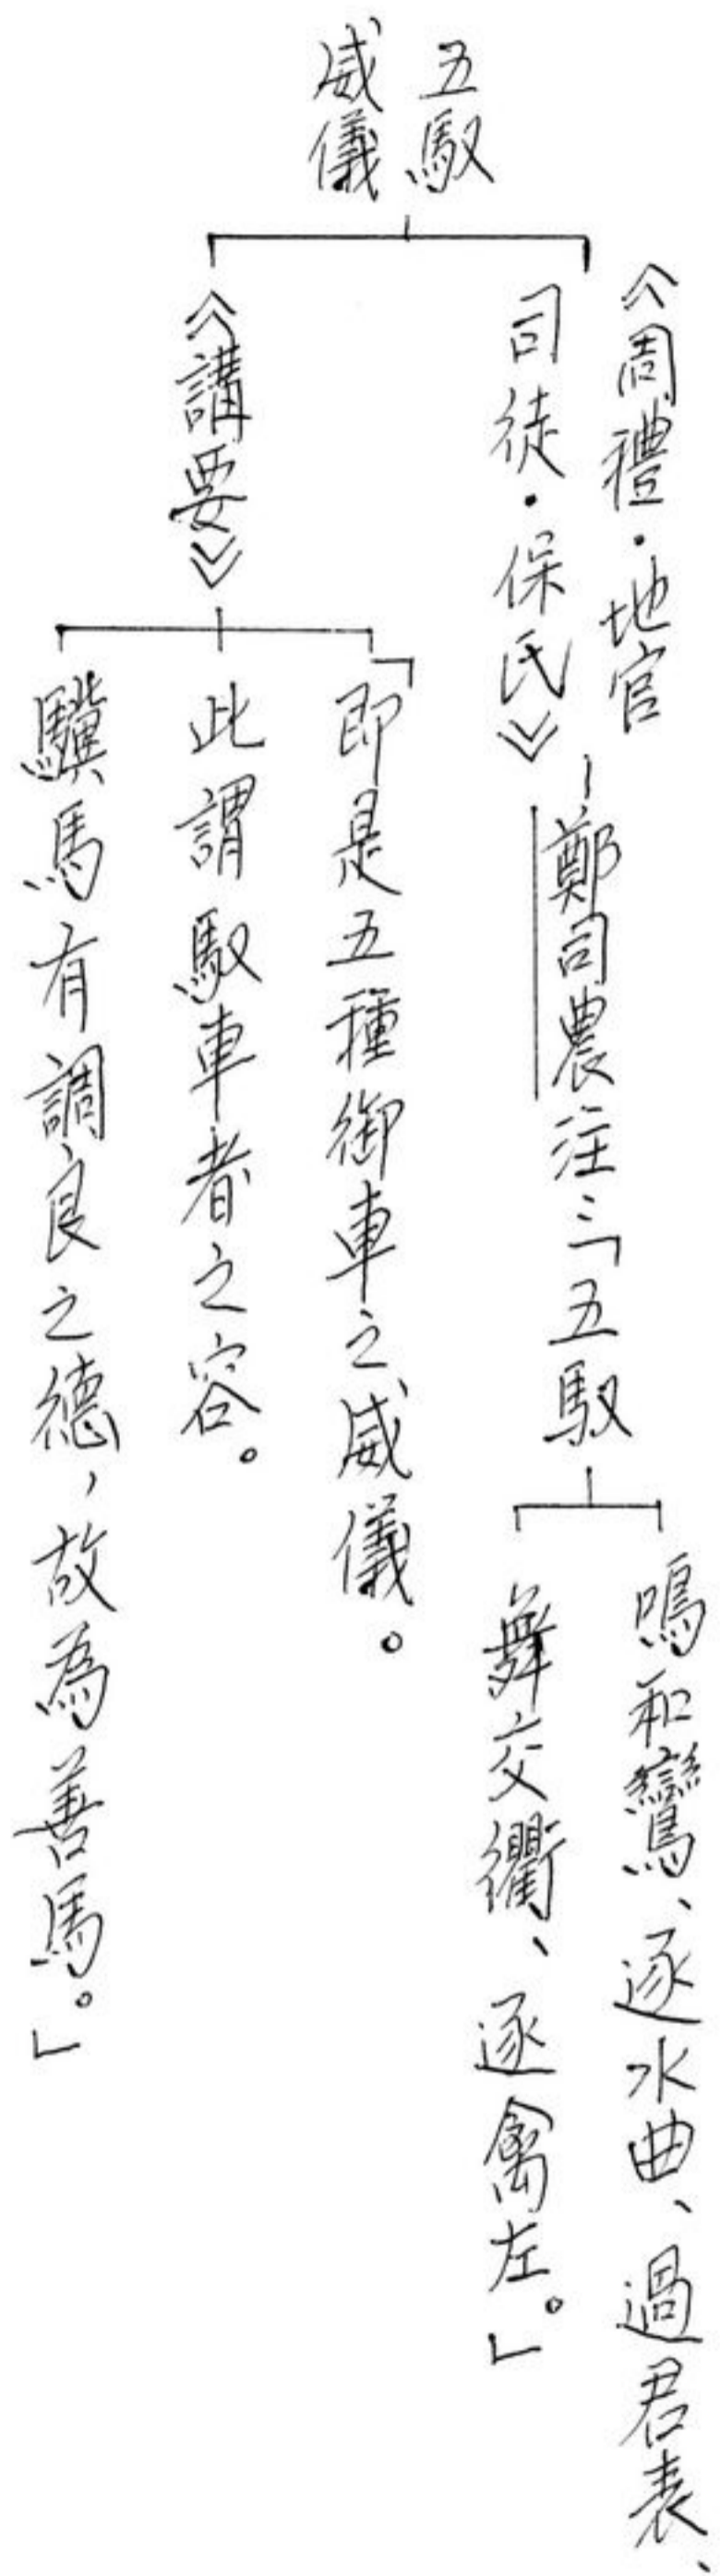 五馭
威儀
《周禮·地官
司徒·保氏》
鄭司農注:「五馭
鳴和鸞、逐水曲、過君表、
舞交衢、逐禽左。」
《講要》
「即是五種御車之威儀。
此謂馭車者之容。
驥馬有調良之德,故為善馬。」